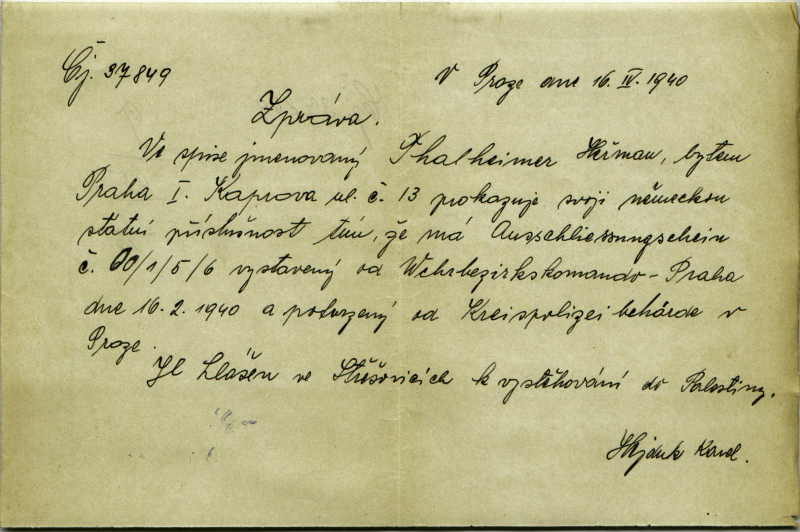 Čj. 37849
V Praze dne 16. IV. 1940
Zpráva.
Ve spise jmenovaný Thalheimer Heřman, bytem
Praha I. Kaprova ul. č. 13 prokazuje svoji německou
státní příslušnost tím, že má Ausschliessungschein
č. 00/1/5/6 vystavený od Wehrbezirkskomando - Praha
dne 16. 2. 1940 a potvrzený od Kreispolizeibehörde v
Praze.
Jl hlášen ve Střešovicích k vystěhování do Palestiny.
Hejduk Karel.